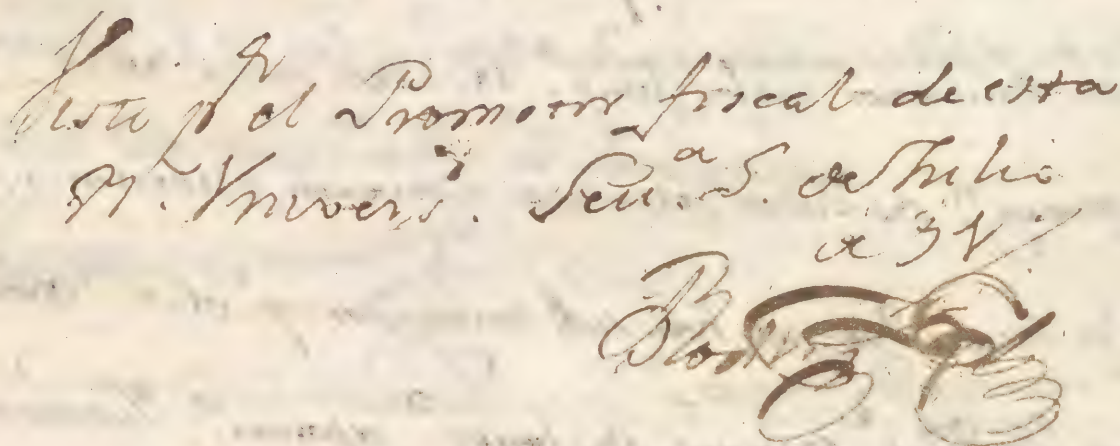 Visto pr el Promotor fiscal de esta
Vnivers.d Seu.a 5. de Julio
de